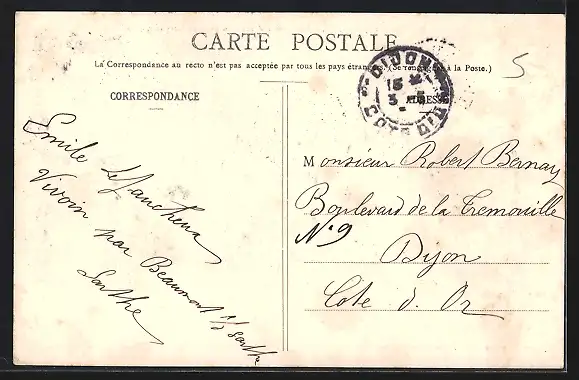 CARTE POSTALE
La Correspondance au recto n'est pas acceptée par tous les pays étrangers. (Se renseigner à la Poste.)
5
CORRESPONDANCE
ADRESSE
DIJON
15
3
COTE D'OR
Emile
Vivoin par Beaumont s/s Sarthe
Sarthe
Monsieur Robert Bernay
Boulevard de la Tremouille
N° 9
Dijon
Cote d'Or